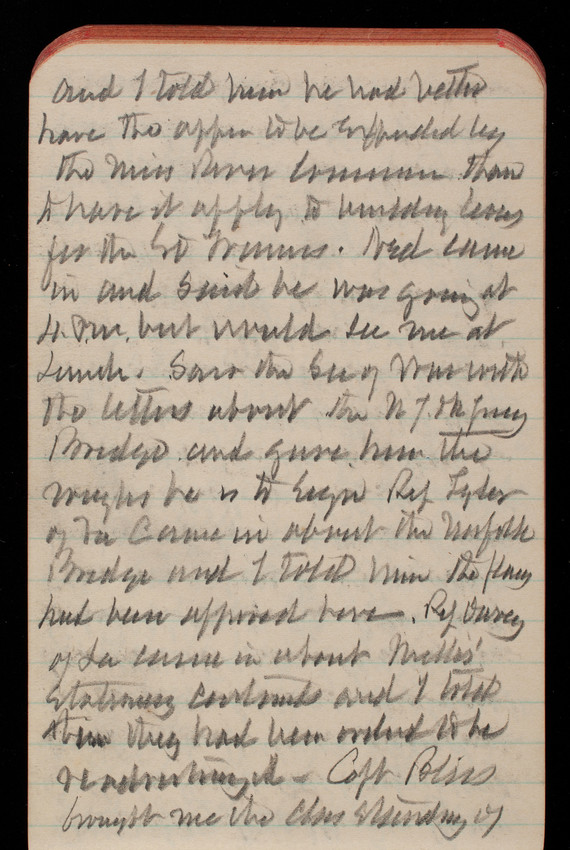 and I told him he had better
have the appn to be Expended by
the Miss River Commission than
to have it apply to building levees
for the St Francis. Ned came
in and said he was going at
4 P.m. but would see me at
Lunch. Saw the Sec of War with
the letters about the N Y & N Jersey
Bridge and gave him the
he is to Sign Rep Tyler
of Va Came in about the Norfolk
Bridge and I told him the plans
had been approved here. Rep Davey
of La came in about Willis'
and I told
him they had been ordered to be
readvertized - Capt Bliss
brought me the Class Standing of